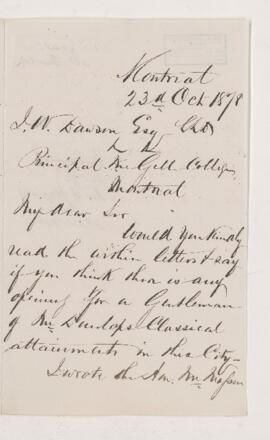 Montreal
23d Oct 1878
J. W. Dawson Esq
Principal McGill College
Montreal
My dear Sir
Would you kindly
read the within letters & say
if you think there is any
opening for a Gentleman
of Mr Dunlops Classical
attainments in this City—
I wrote the Hon. Mr Masson